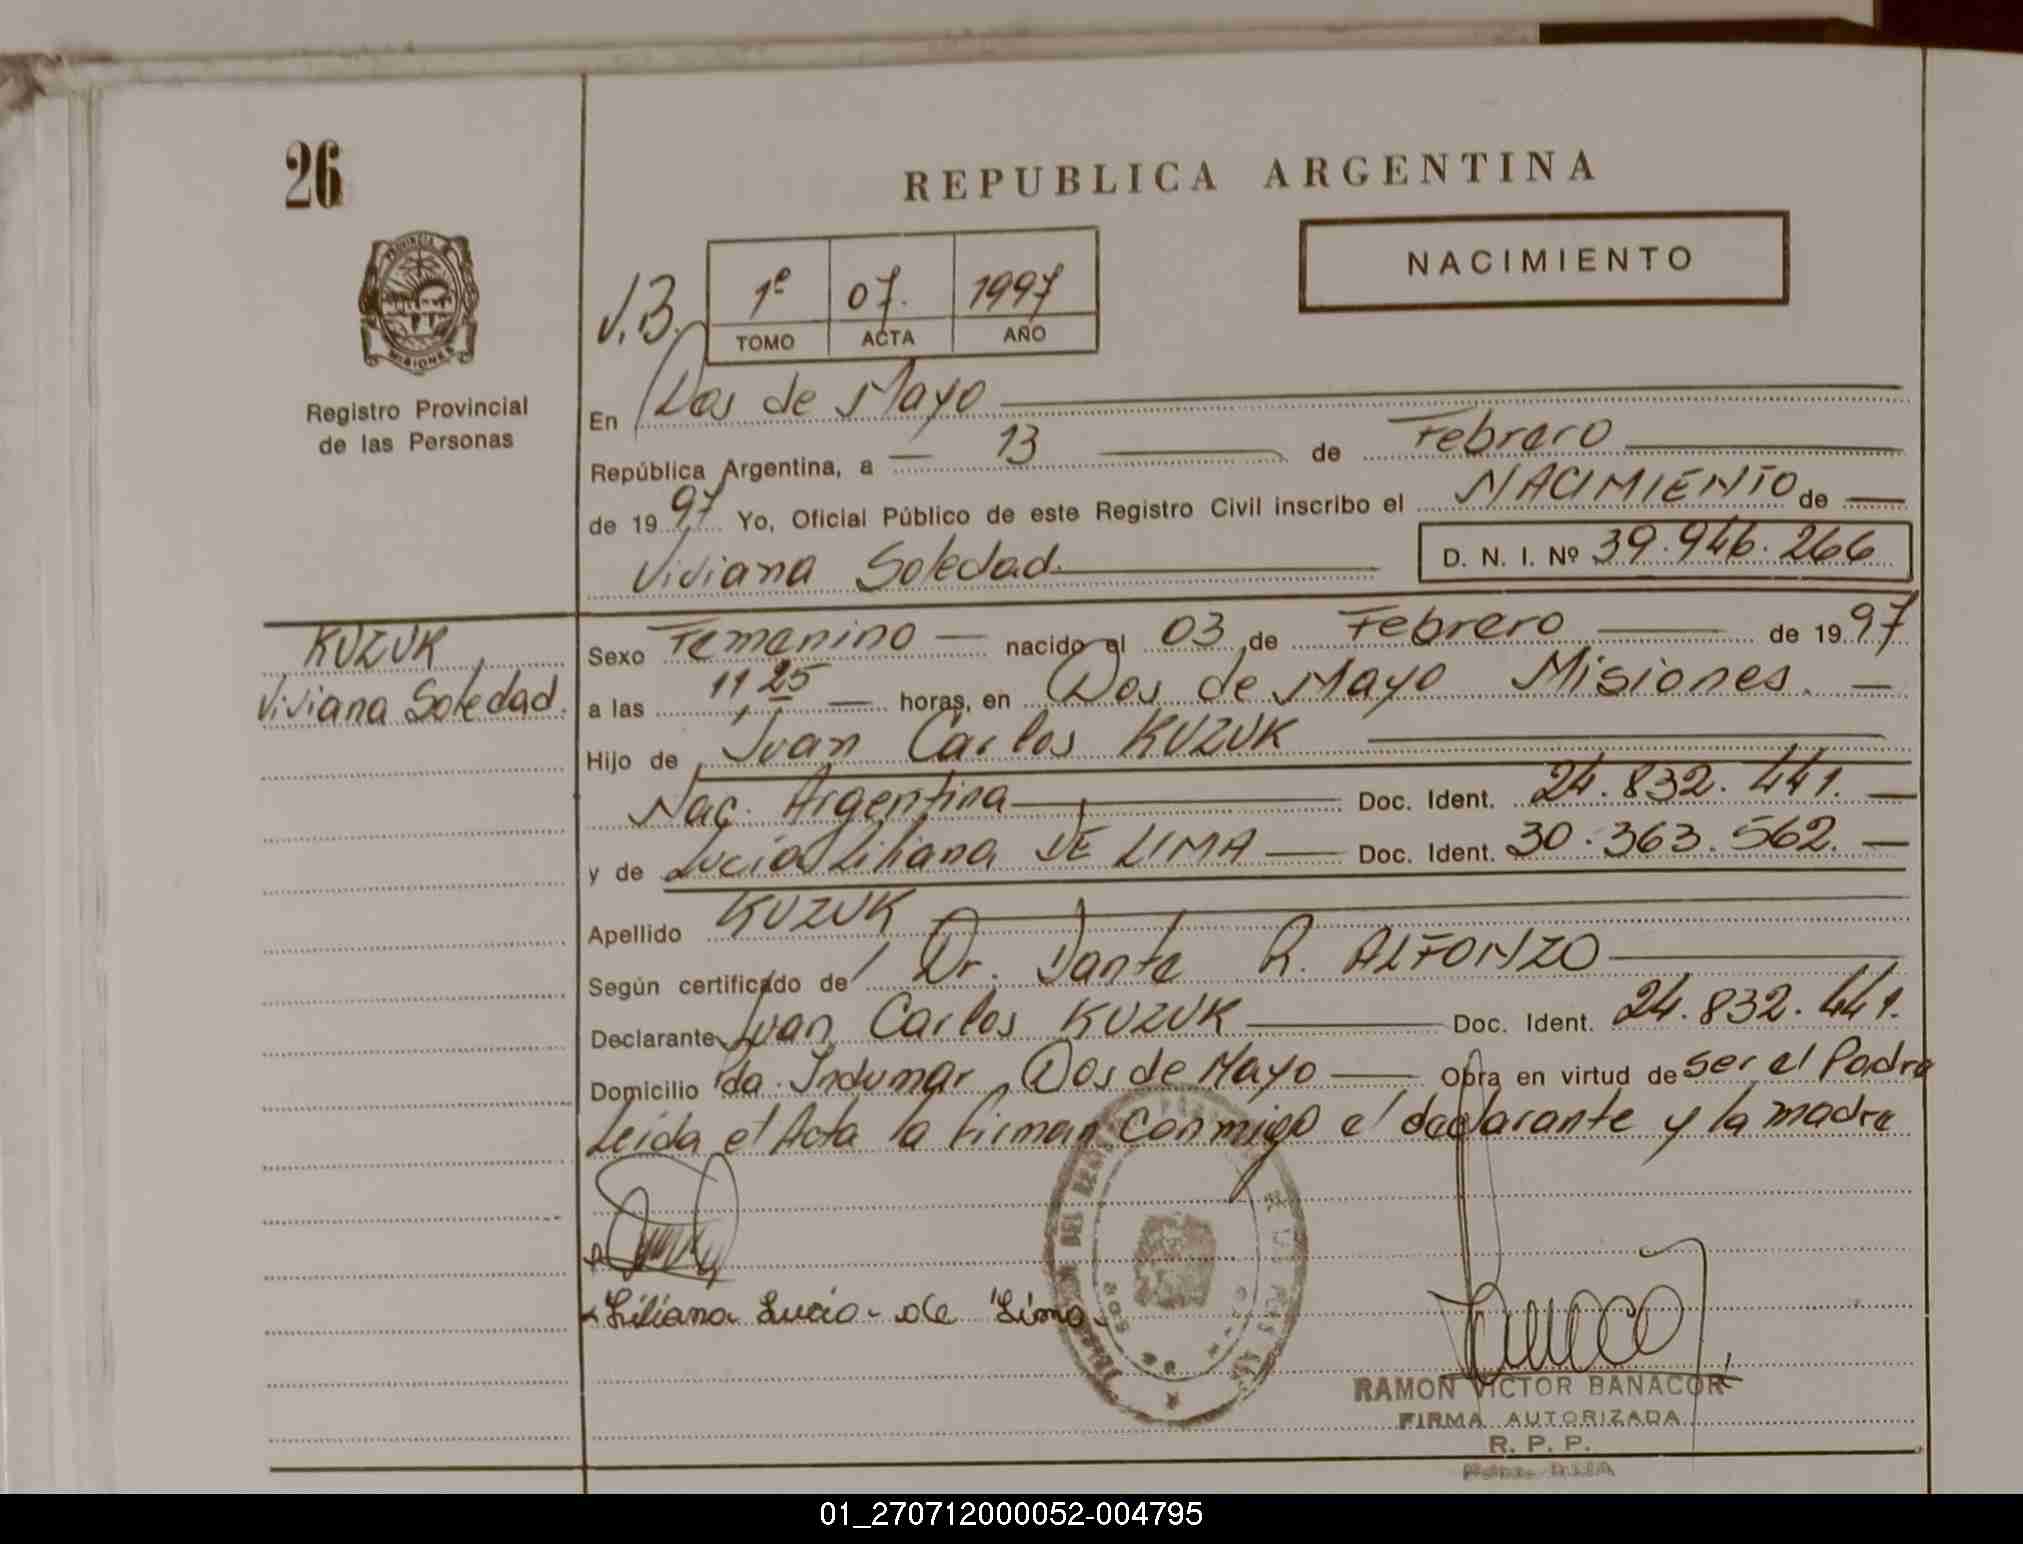 26
REPUBLICA ARGENTINA
NACIMIENTO
PROVINCIA
MISIONES
Registro Provincial
de las Personas
V.B.
1º 07. 1997
TOMO ACTA AÑO
En Dos de Mayo
República Argentina, a 13 de Febrero
de 1997 Yo, Oficial Público de este Registro Civil inscribo el NACIMIENTO de
Viviana Soledad. D. N. I. Nº 39.946.266
KUZUK
Viviana Soledad.
Sexo Femenino nacido el 03 de Febrero de 1997
a las 11 25 horas, en Dos de Mayo Misiones.
Hijo de Juan Carlos KUZUK
Nac. Argentina Doc. Ident. 24.832.441.
y de Lucia Liliana DE LIMA Doc. Ident. 30.363.562.
Apellido KUZUK
Según certificado de Dr. Dante R. ALFONZO
Declarante Juan Carlos KUZUK Doc. Ident. 24.832.441.
Domicilio Indumar Dos de Mayo Obra en virtud de ser el Padre
Leida el Acta la firman conmigo el declarante y la madre
Liliana Lucia de Lima
RAMON VICTOR BANACOR
FIRMA AUTORIZADA
R. P. P.
01_270712000052-004795